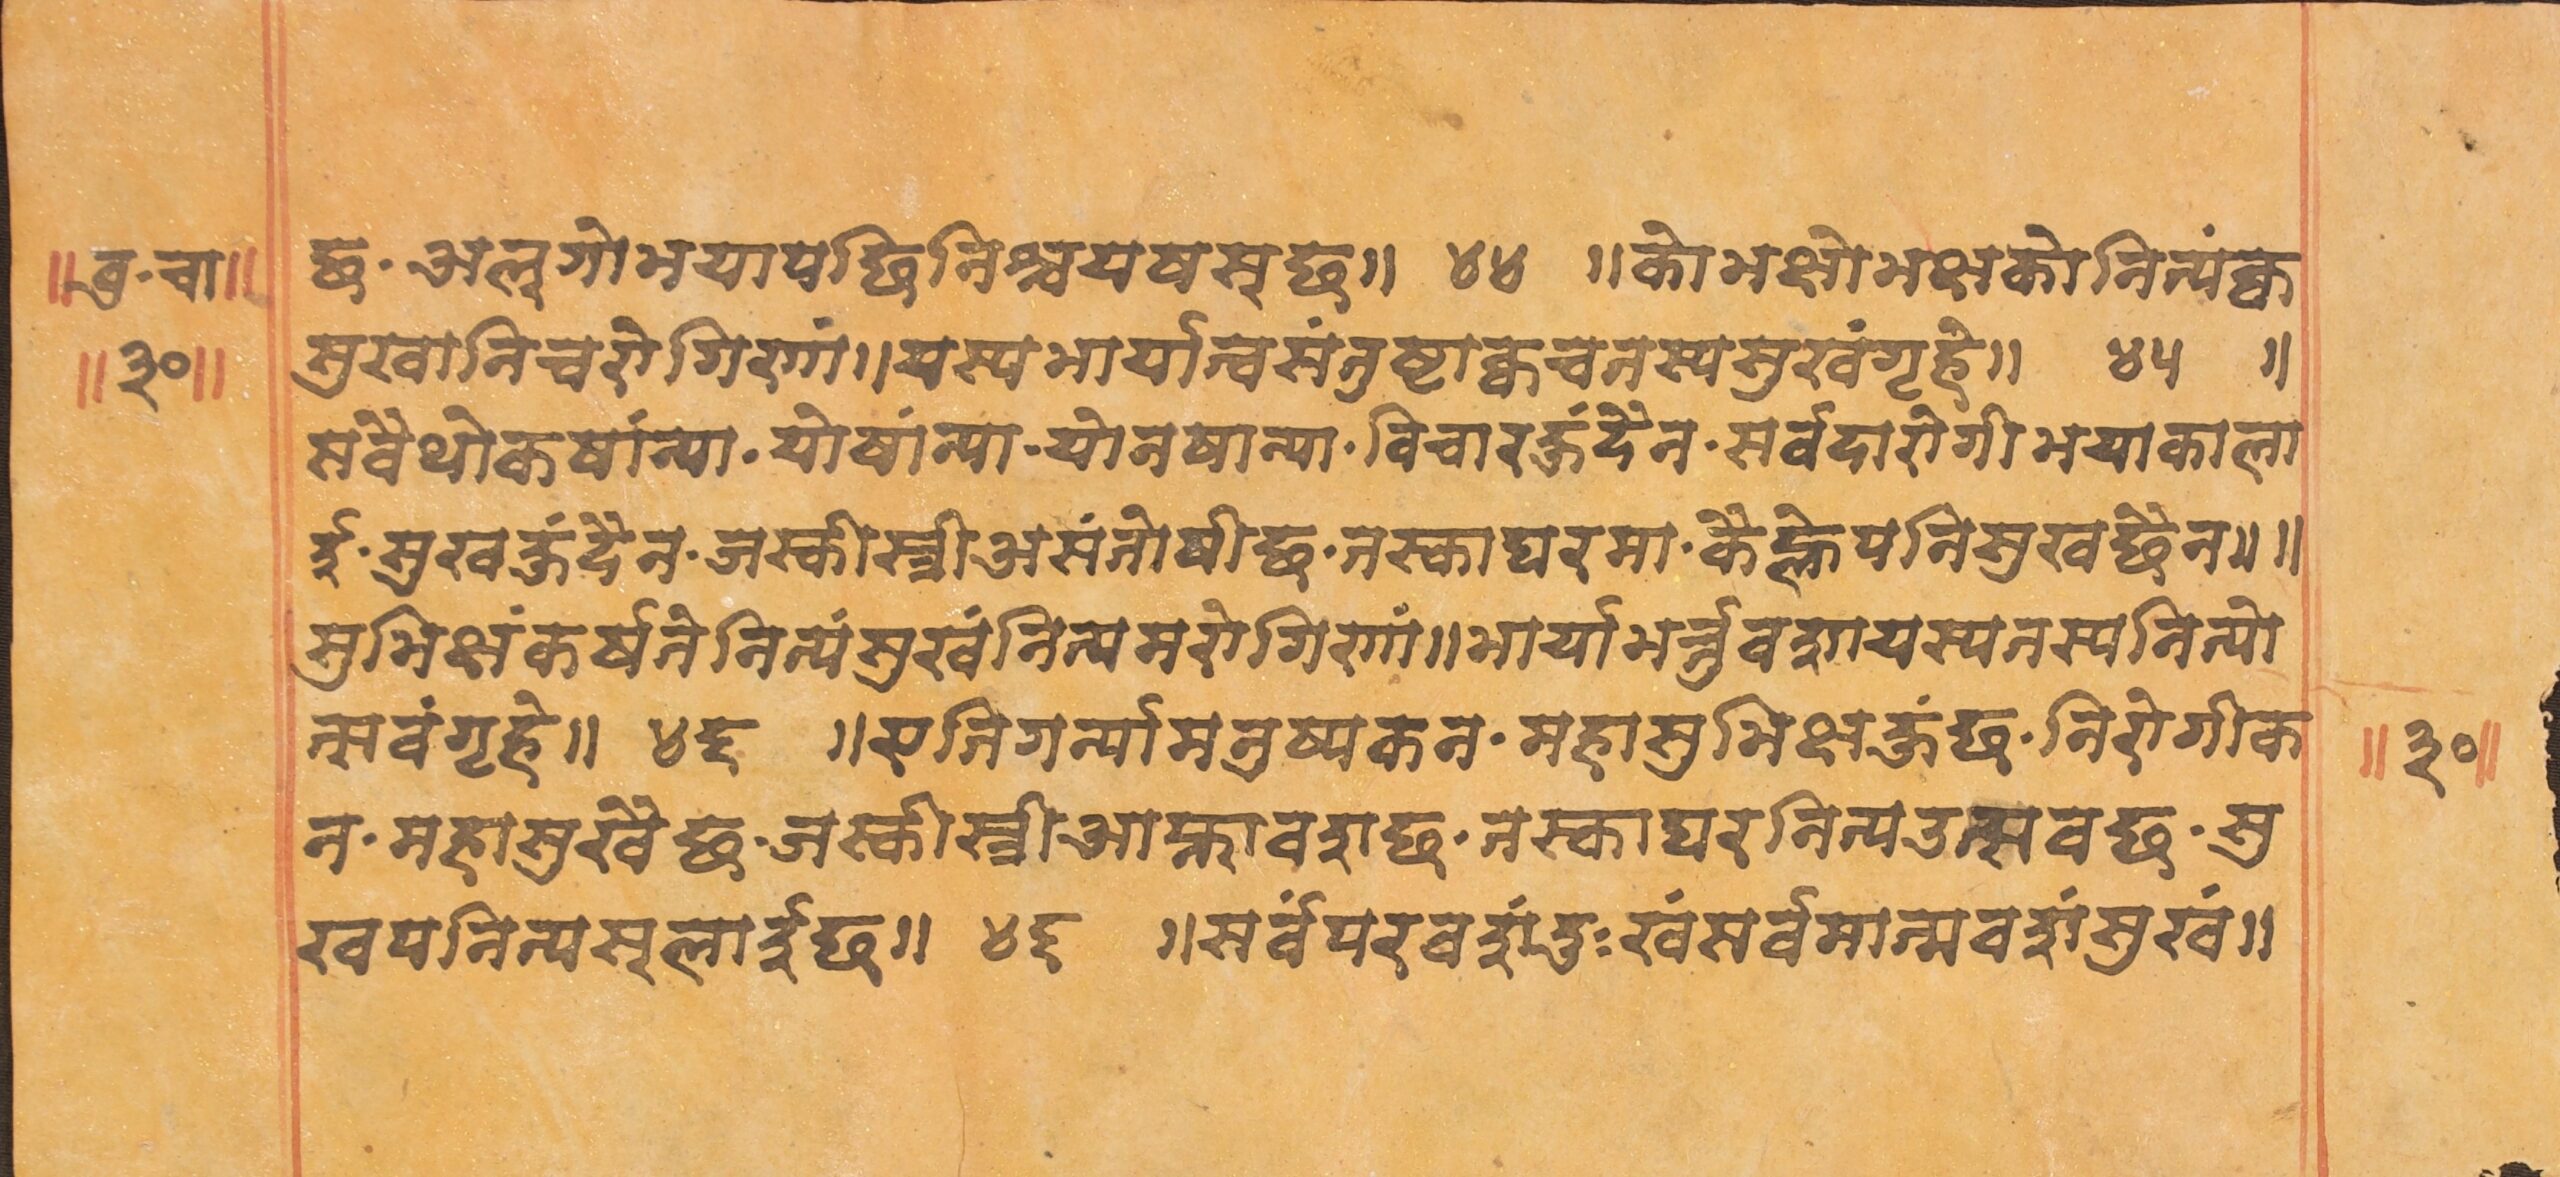 ॥वृ·चा॥
॥३०॥
छ·अल्गोभयापछिनिश्चयषस्छ॥ ४४ ॥कोभक्षोभक्षकोनित्यंक्व
सुखानिच्वरोगिणां॥यस्यभार्यात्वसंतुष्टाक्वचतस्यसुखंगृहे॥ ४५ ॥
सवैथोकषांन्या·योषांन्या·योनषान्या·विचारहुंदैन·सर्वदारोगीभयाकाला
ई·सुखहुंदैन·जस्कीस्त्रीअसंतोषीछ·तस्काघरमा·कैह्लेपनिसुखछैन॥॥
सुभिक्षंकर्षनेनित्यंसुखंनित्यमरोगिणां॥भार्याभर्त्तुवशायस्यतस्यनित्यो
त्सवंगृहे॥ ४६ ॥षेतिगर्न्यामनुष्यकन·महासुभिक्षहुंछ·निरोगीक
न·महासुखैछ·जस्कीस्त्रीआफ्नावशछ·तस्काघरनित्यउत्सवछ·सु
खपनित्यस्लाईछ॥ ४६ ॥सर्वंपरवशंदुःखंसर्वमात्मवशंसुखं॥
॥३०॥